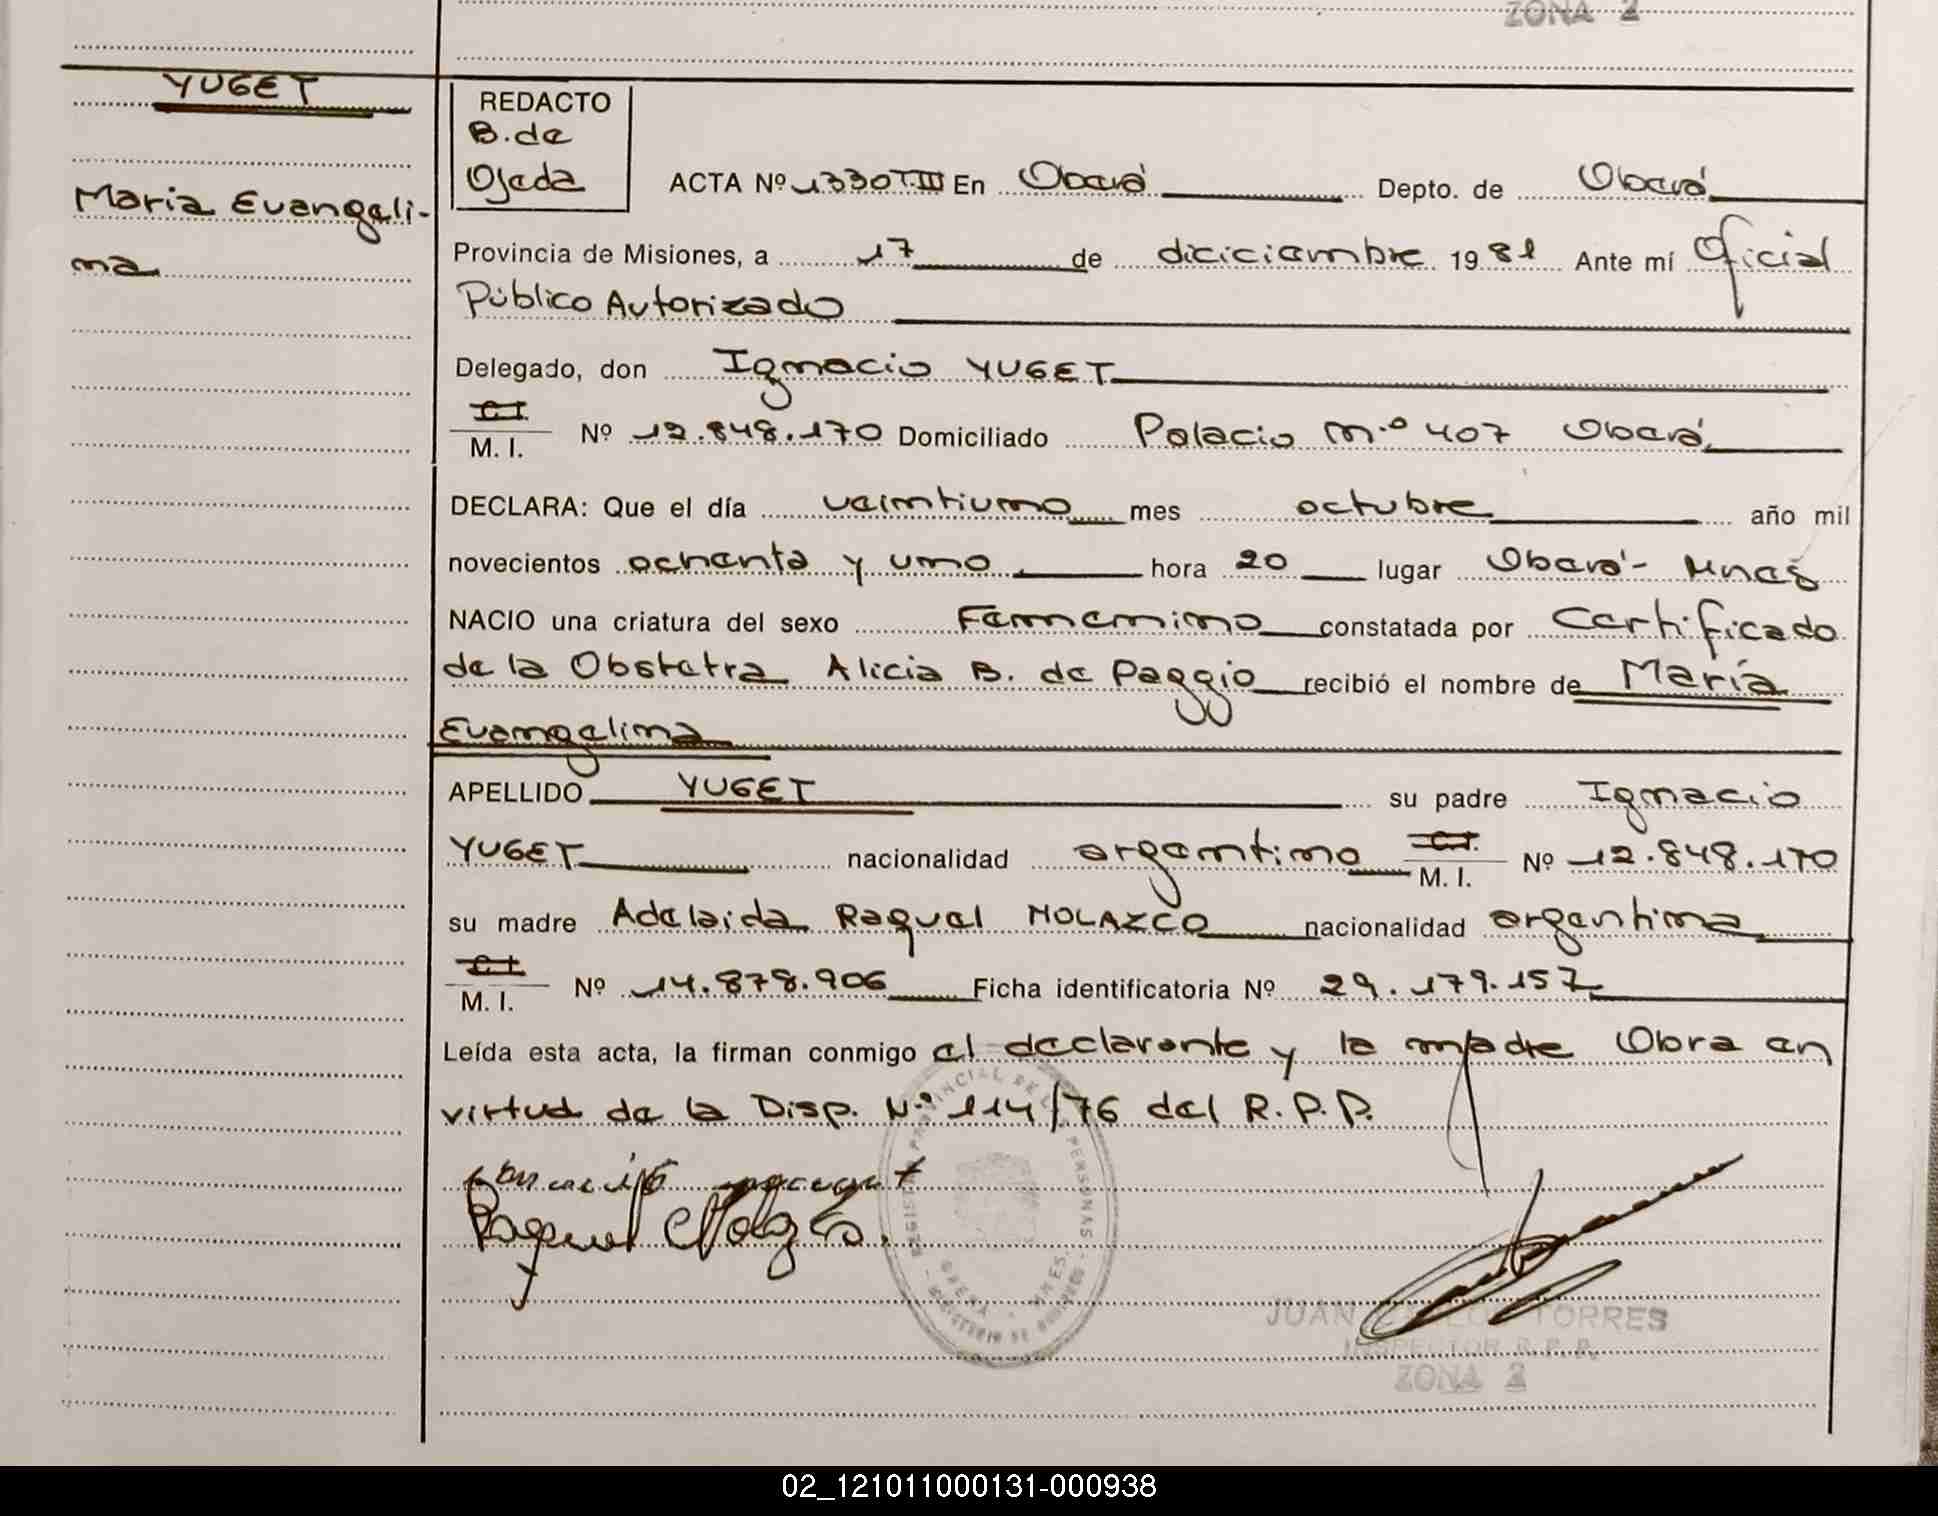 ZONA 2
YUGET
REDACTO
B. de
Ojeda
Maria Evangeli-
na
ACTA Nº 1330 T.III En Oberá Depto. de Oberá
Provincia de Misiones, a 17 de diciciembre 1981 Ante mí Oficial
Público Autorizado
Delegado, don Ignacio YUGET
C.I.
M. I. Nº 12.848.170 Domiciliado Palacio n.º 407 Oberá
DECLARA: Que el día veintiuno mes octubre año mil
novecientos ochenta y uno hora 20 lugar Oberá - Mnes
NACIO una criatura del sexo Femenino constatada por Certificado
de la Obstetra Alicia B. de Paggio recibió el nombre de María
Evangelina
APELLIDO YUGET su padre Ignacio
YUGET nacionalidad argentino C.I. M. I. Nº 12.848.170
su madre Adelaida Raquel NOLAZCO nacionalidad argentina
C.I.
M. I. Nº 14.878.906 Ficha identificatoria Nº 29.179.157
Leída esta acta, la firman conmigo el declarante y la madre Obra en
virtud de la Disp. N.º 114/76 del R.P.P.
Raquel Nolazco
REGISTRO PROVINCIAL DE LAS PERSONAS
OBERA - MNES.
MINISTERIO DE GOBIERNO
JUAN CARLOS TORRES
INSPECTOR R.P.P.
ZONA 2
02_121011000131-000938